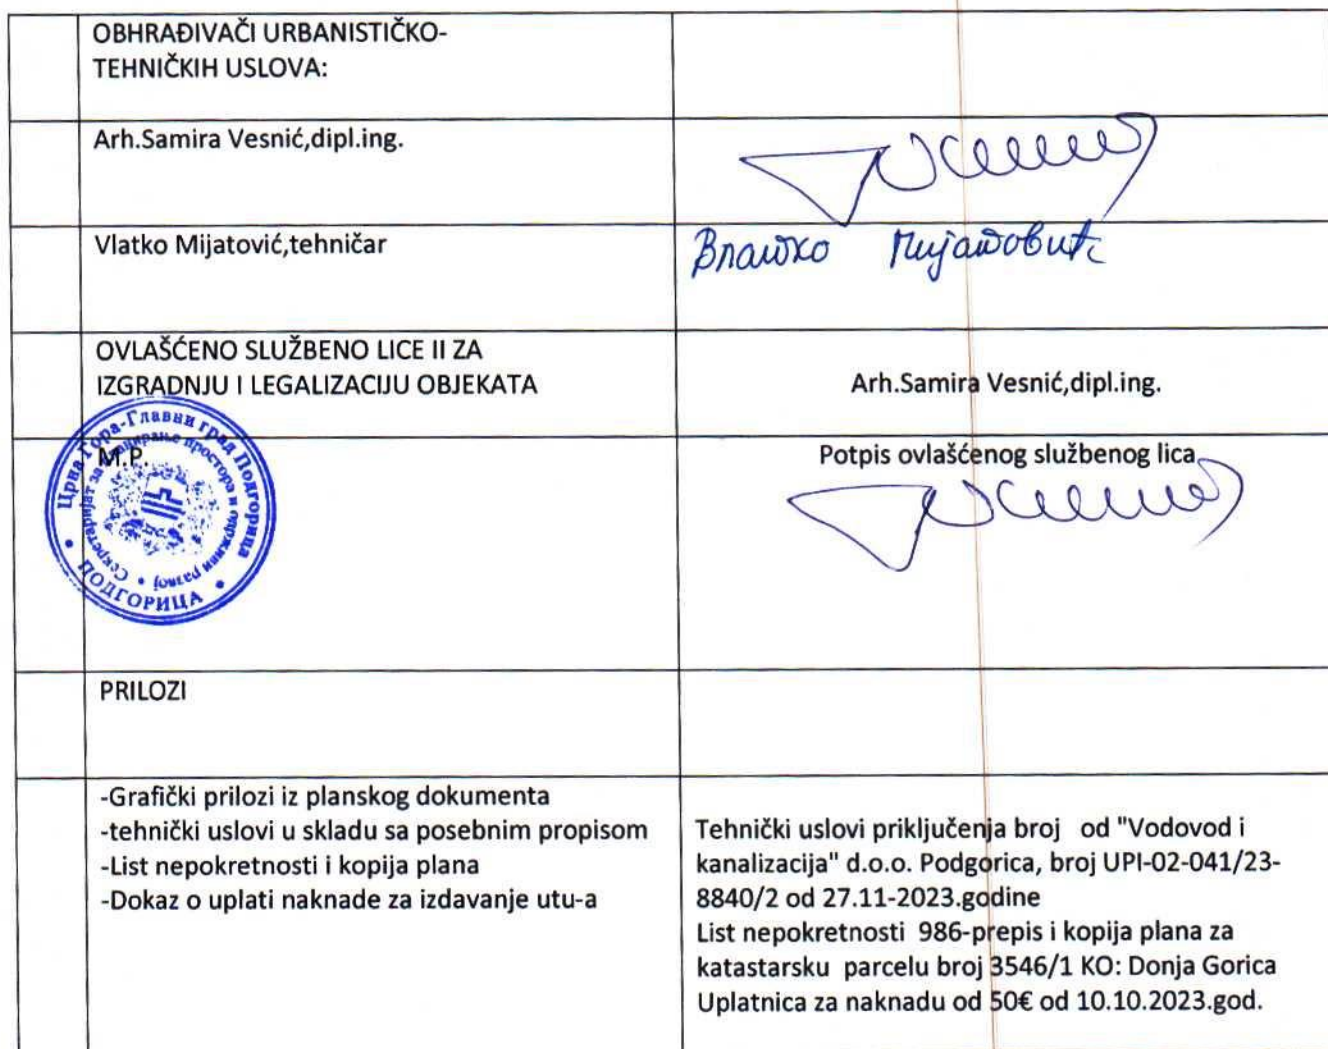 OBHRAĐIVAČI URBANISTIČKO-
TEHNIČKIH USLOVA:
Arh.Samira Vesnić,dipl.ing.
Vlatko Mijatović,tehničar
Влатко Мијатовић
OVLAŠĆENO SLUŽBENO LICE II ZA
IZGRADNJU I LEGALIZACIJU OBJEKATA
Arh.Samira Vesnić,dipl.ing.
M.P.
Црна Гора-Главни град Подгорица
Секретаријат за планирање простора и одрживи развој
ПОДГОРИЦА
Potpis ovlašćenog službenog lica
PRILOZI
-Grafički prilozi iz planskog dokumenta
-tehnički uslovi u skladu sa posebnim propisom
-List nepokretnosti i kopija plana
-Dokaz o uplati naknade za izdavanje utu-a
Tehnički uslovi priključenja broj od "Vodovod i
kanalizacija" d.o.o. Podgorica, broj UPI-02-041/23-
8840/2 od 27.11-2023.godine
List nepokretnosti 986-prepis i kopija plana za
katastarsku parcelu broj 3546/1 KO: Donja Gorica
Uplatnica za naknadu od 50€ od 10.10.2023.god.